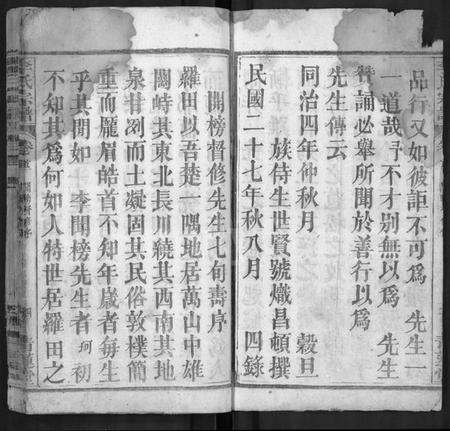 品行又如彼詎不可爲　先生一
一道哉予不才別無以爲　先生
譽誦必舉所聞於善行以爲
先生傳云
同治四年仲秋月　穀旦
族侍生世賢號熾昌頓撰
民國二十七年秋八月　四錄
開榜督修先生七旬壽序
羅田以吾楚一隅地居萬山中雄
闊峙其東北長川繞其西南其地
泉甘冽而土凝固其民俗敦樸簡
重而龐眉皓首不知年歲者每生
乎其間如子李開榜先生者珂初
不知其爲何如人特世居羅田之